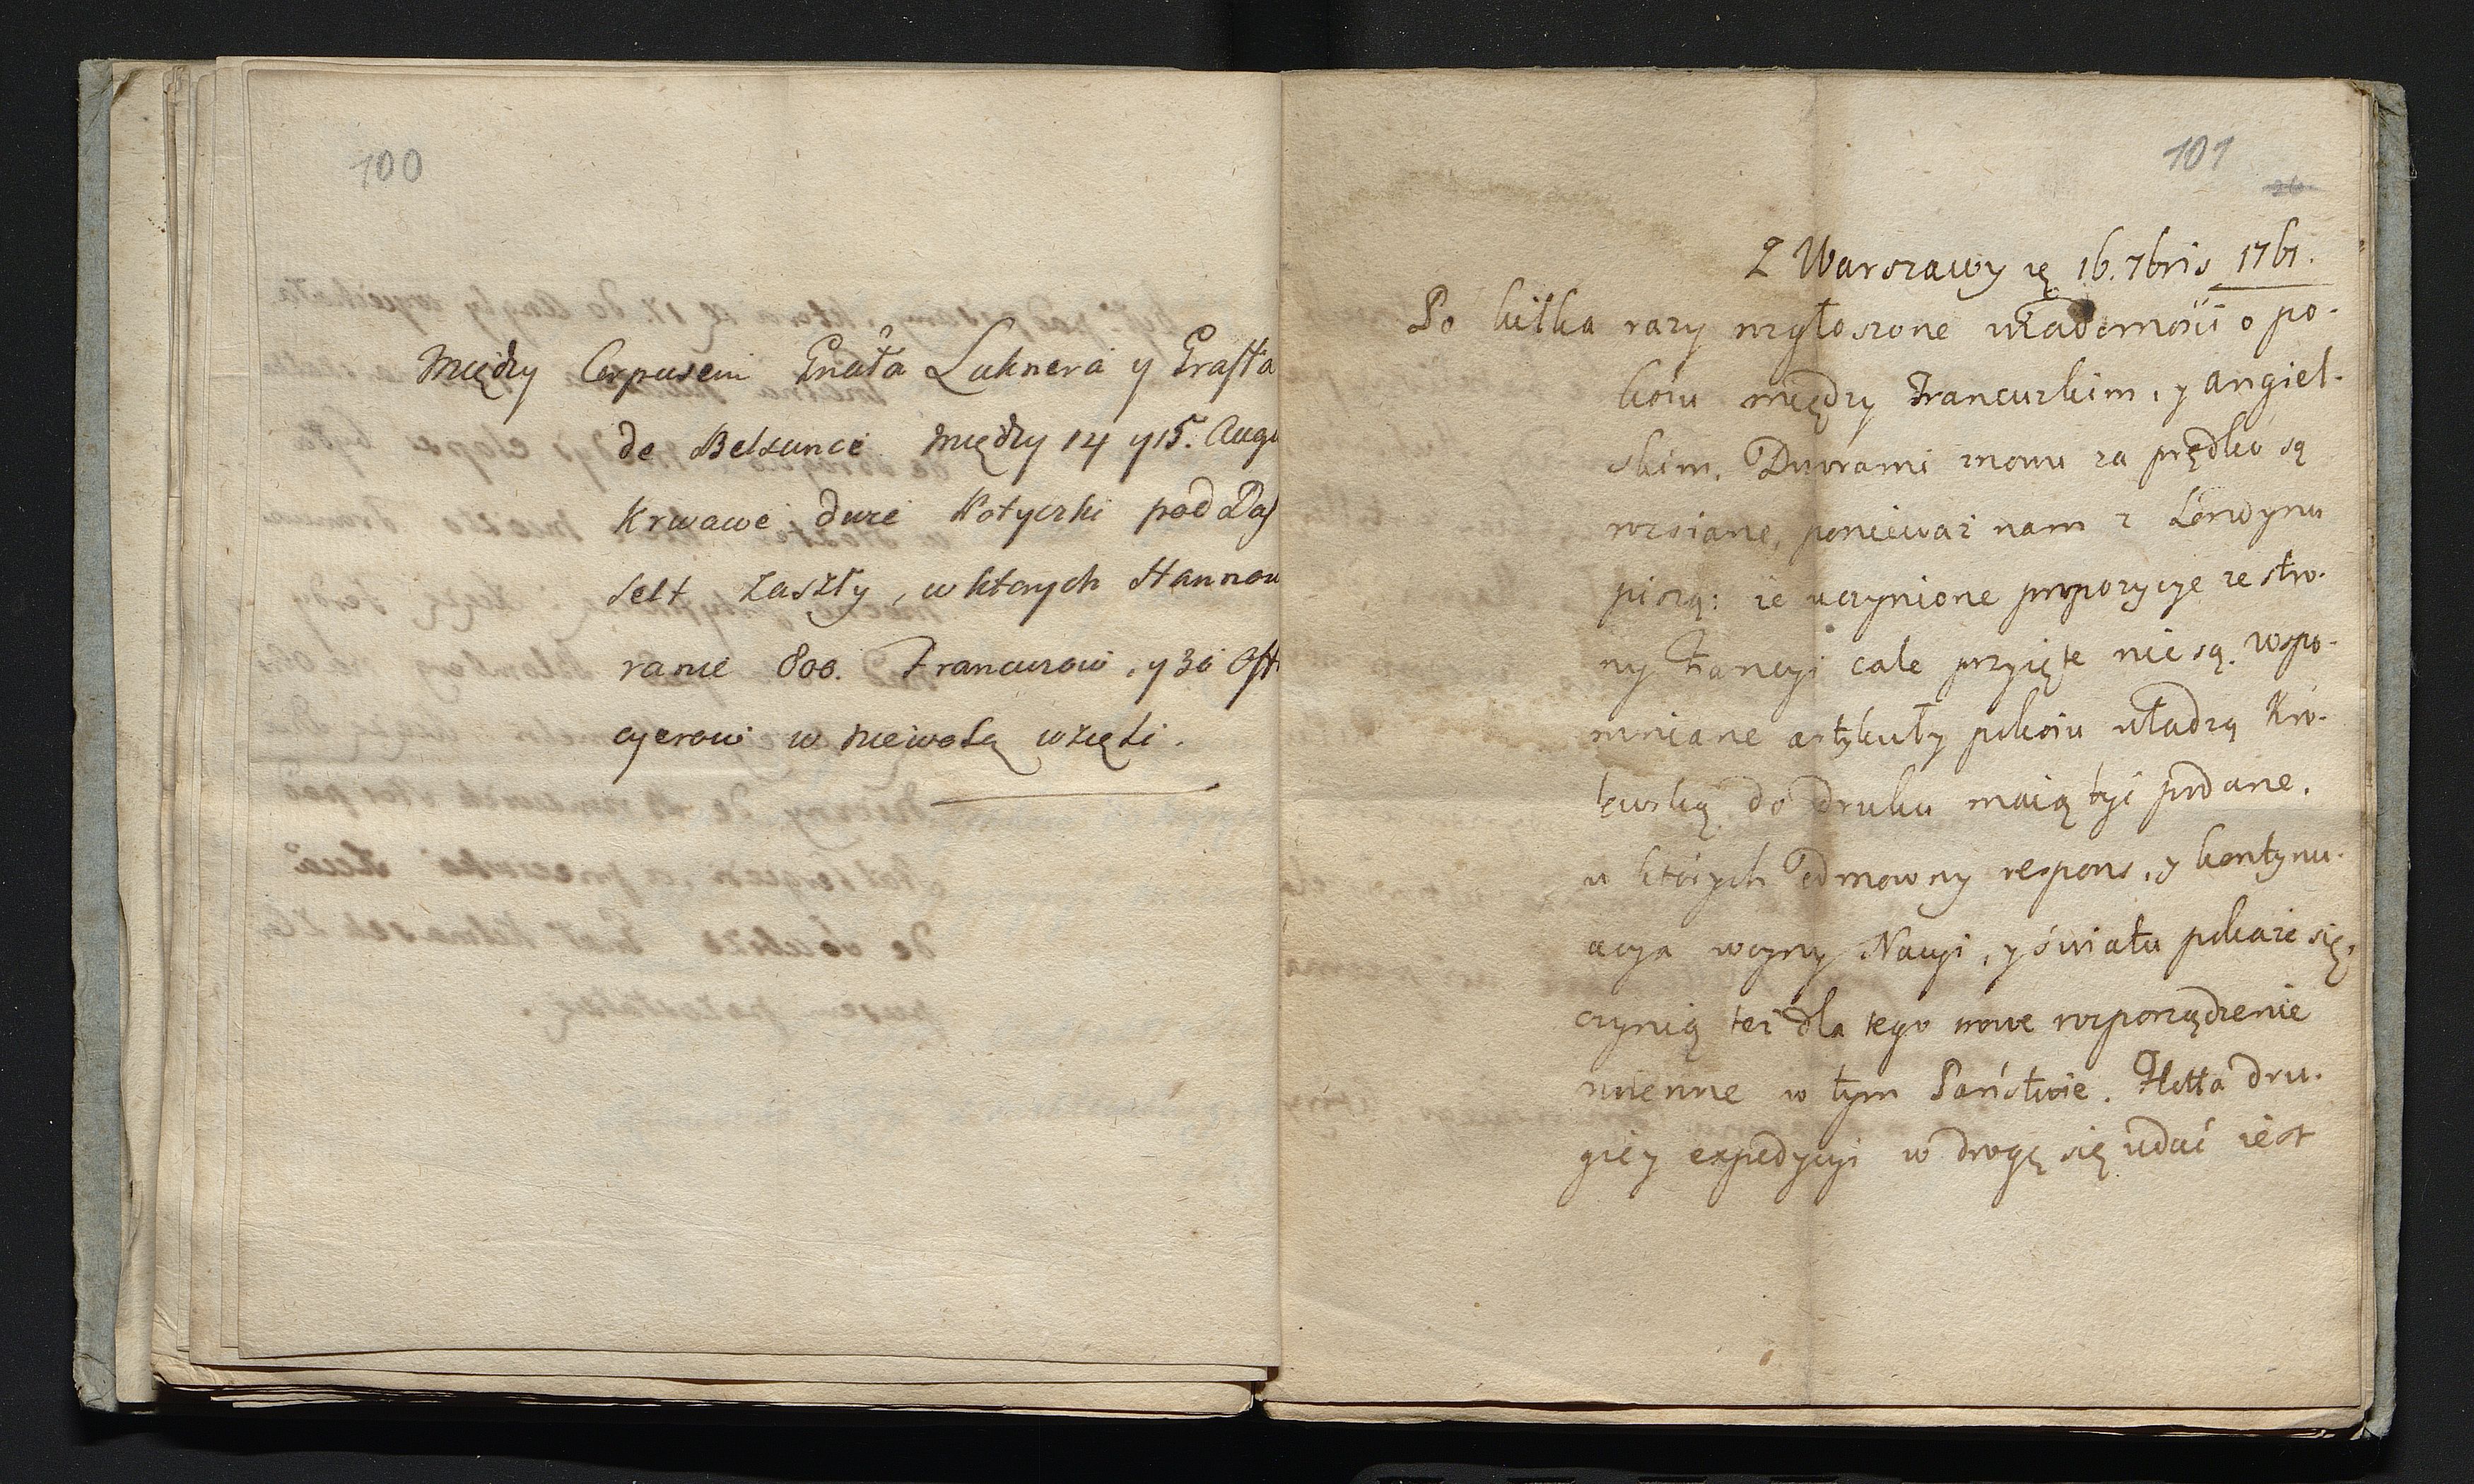 100
Między Corpusem Gnała Luknera y Graffa
de Belsunce Między 14 y 15. Augu
Krwawe dwie Potyczki pod Das
selt zaszły, w ktorych Hannow
ranie 800. Francuzow, y 30 Offi
cyerow w niewolą wzięli.
101
26
Z Warszawy 16. 7bris 1761.
Po kilka razy rozgłoszone wiadomości o po-
koiu między Francuzkim, y angiel-
skim, Dworami znowu za prędko są
rozsiane, ponieważ nam z Londynu
piszą: że uczynione propozycye ze stro-
ny Francyi cale przyięte nie są. wspo-
mniane artykuły pokoiu władzą Kró-
lewską do druku maią być podane,
w których odmowny respons, y kontynu-
acya woyny Nacyi, y światu pokaże się,
czynią też dla tego nowe rozporządzenie
woienne w tym Państwie. Flotta dru-
giey expedycyi w drogę się udać iest